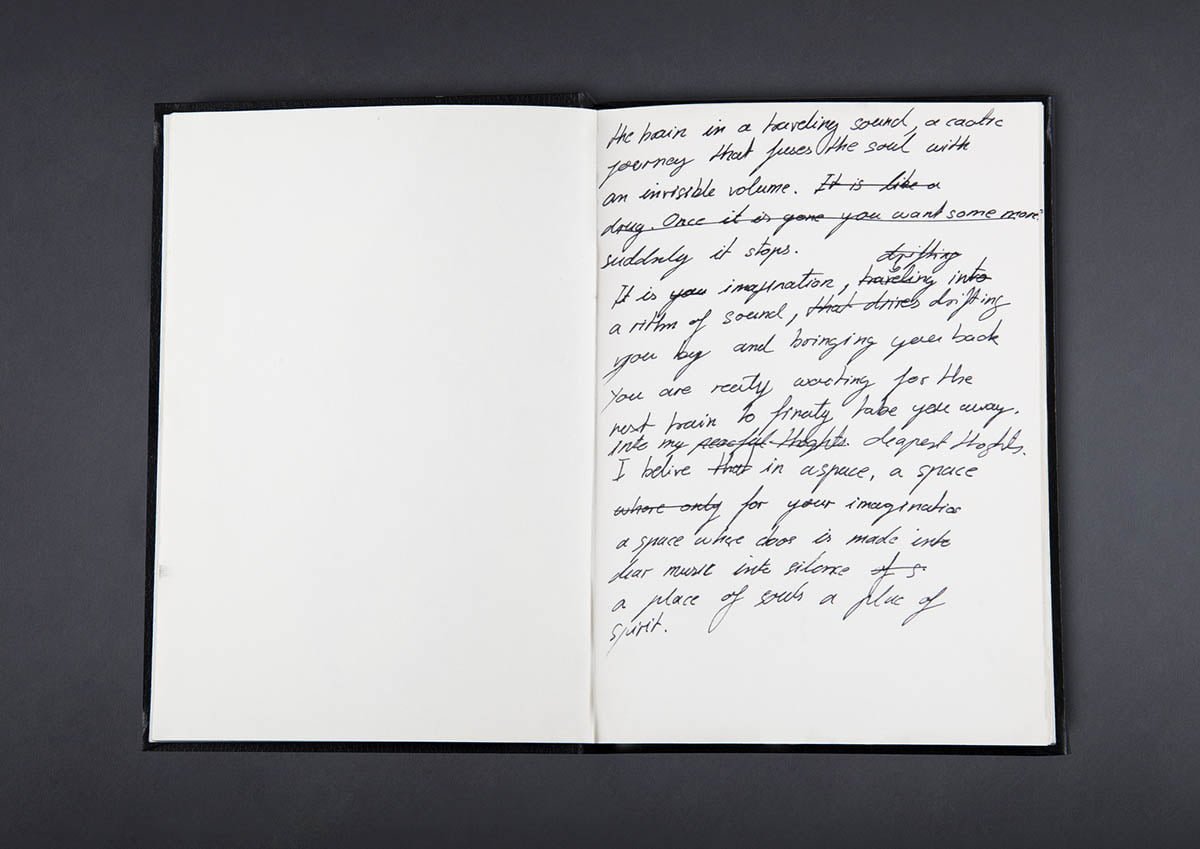 the train in a traveling sound, a caotic
journey that fuses the soul with
an invisible volume. It is like a
drug. Once it is gone you want some more?
suddnly it stops.
drifting
It is your imagination, traveling into
a rithm of sound, that drives drifting
you by and bringing you back
You are realty waiting for the
next train to finaty take you away.
into my peacful thoghts deapest thoghts.
I belive that in a space, a space
where only for your imagination
a space where caos is made into
clear music into silence of s
a place of souls a place of
spirit.